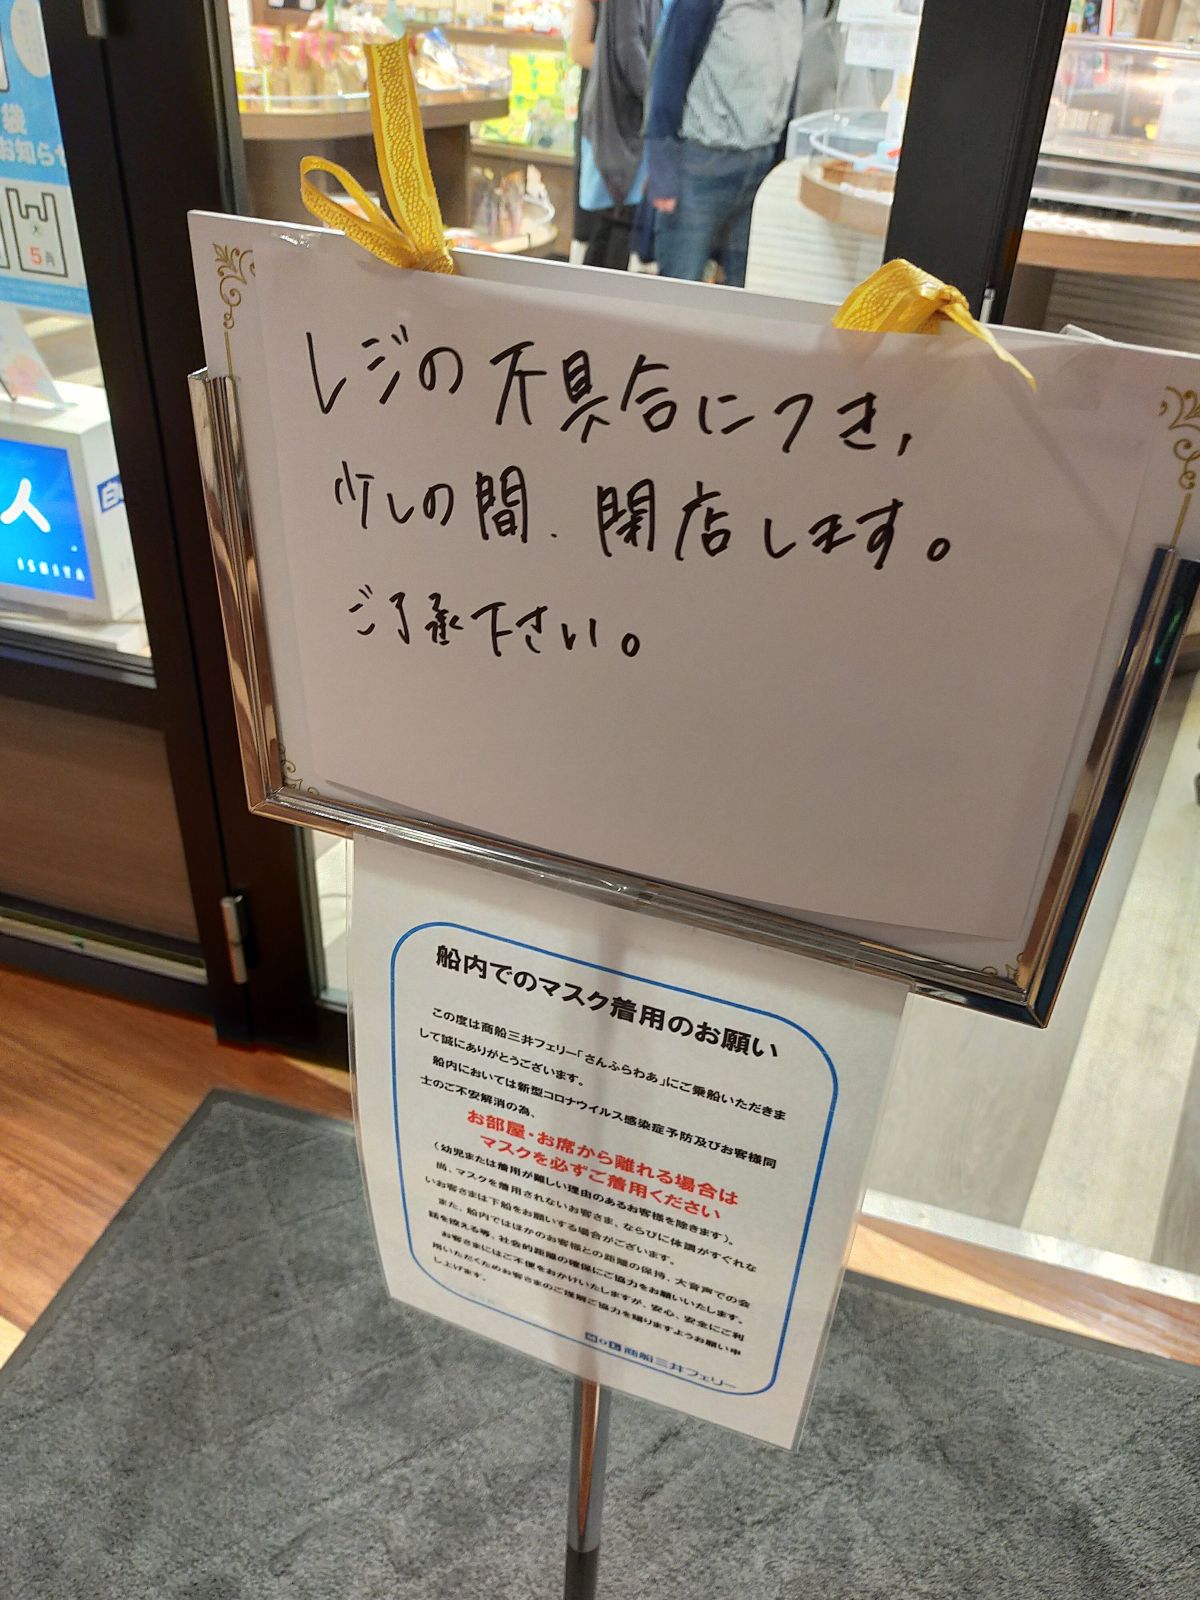 レジの不具合につき,
少しの間、閉店します。
ご了承下さい。
船内でのマスク着用のお願い
この度は商船三井フェリー「さんふらわあ」にご乗船いただきま
して誠にありがとうございます。
船内においては新型コロナウイルス感染症予防及びお客様同
士のご不安解消の為、
お部屋・お席から離れる場合は
マスクを必ずご着用ください
(幼児または着用が難しい理由のあるお客様を除きます)。
尚、マスクを着用されないお客さま、ならびに体調がすぐれな
いお客さまは下船をお願いする場合がございます。
また、船内ではほかのお客様との距離の保持、大音声での会
話を控える等、社会的距離の確保にご協力をお願いいたします。
お客さまにはご不便をおかけいたしますが、安心、安全にご利
用いただくためお客さまのご理解ご協力を賜りますようお願い申
し上げます。
MOL 商船三井フェリー
袋
お知らせ
大
5円
人
ISHIYA